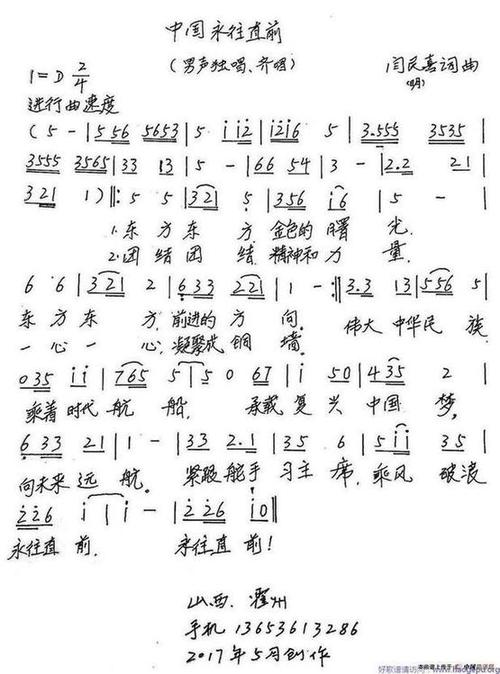 中国永往直前
(男声独唱、齐唱)
1=D 2/4
闫民喜词曲
(明)
进行曲速度
(5 - | 5 56 5653 | 5 i i2 | i2i6 5 | 3.555 3535 |
3555 3565 | 33 13 | 5 - | 66 54 | 3 - | 2.2 21 |
321 1) ‖: 5 5 | 321 5 | 356 i6 | 5 - |
1.东方东 方 金色的曙 光.
2.团结团 结 精神和力 量.
6 6 | 321 2 | 633 221 | 1 - :‖ 3.3 13 | 556 5 |
东方东 方,前进的方 向. 伟大中华民族
一心一 心,凝聚成铜 墙.
035 i i | 765 5 | 5 0 67 | i 50 | 435 2 |
乘着时代航 船, 承载复兴中国梦,
633 21 | 1 - | 33 2.1 | 35 6 | 5 i i 35 |
向未来远航。 紧跟舵手习主席,乘风破浪
226 i | i - | 226 i0 ‖
永往直前, 永往直前!
山西.霍州
手机13653613286
2017年5月创作